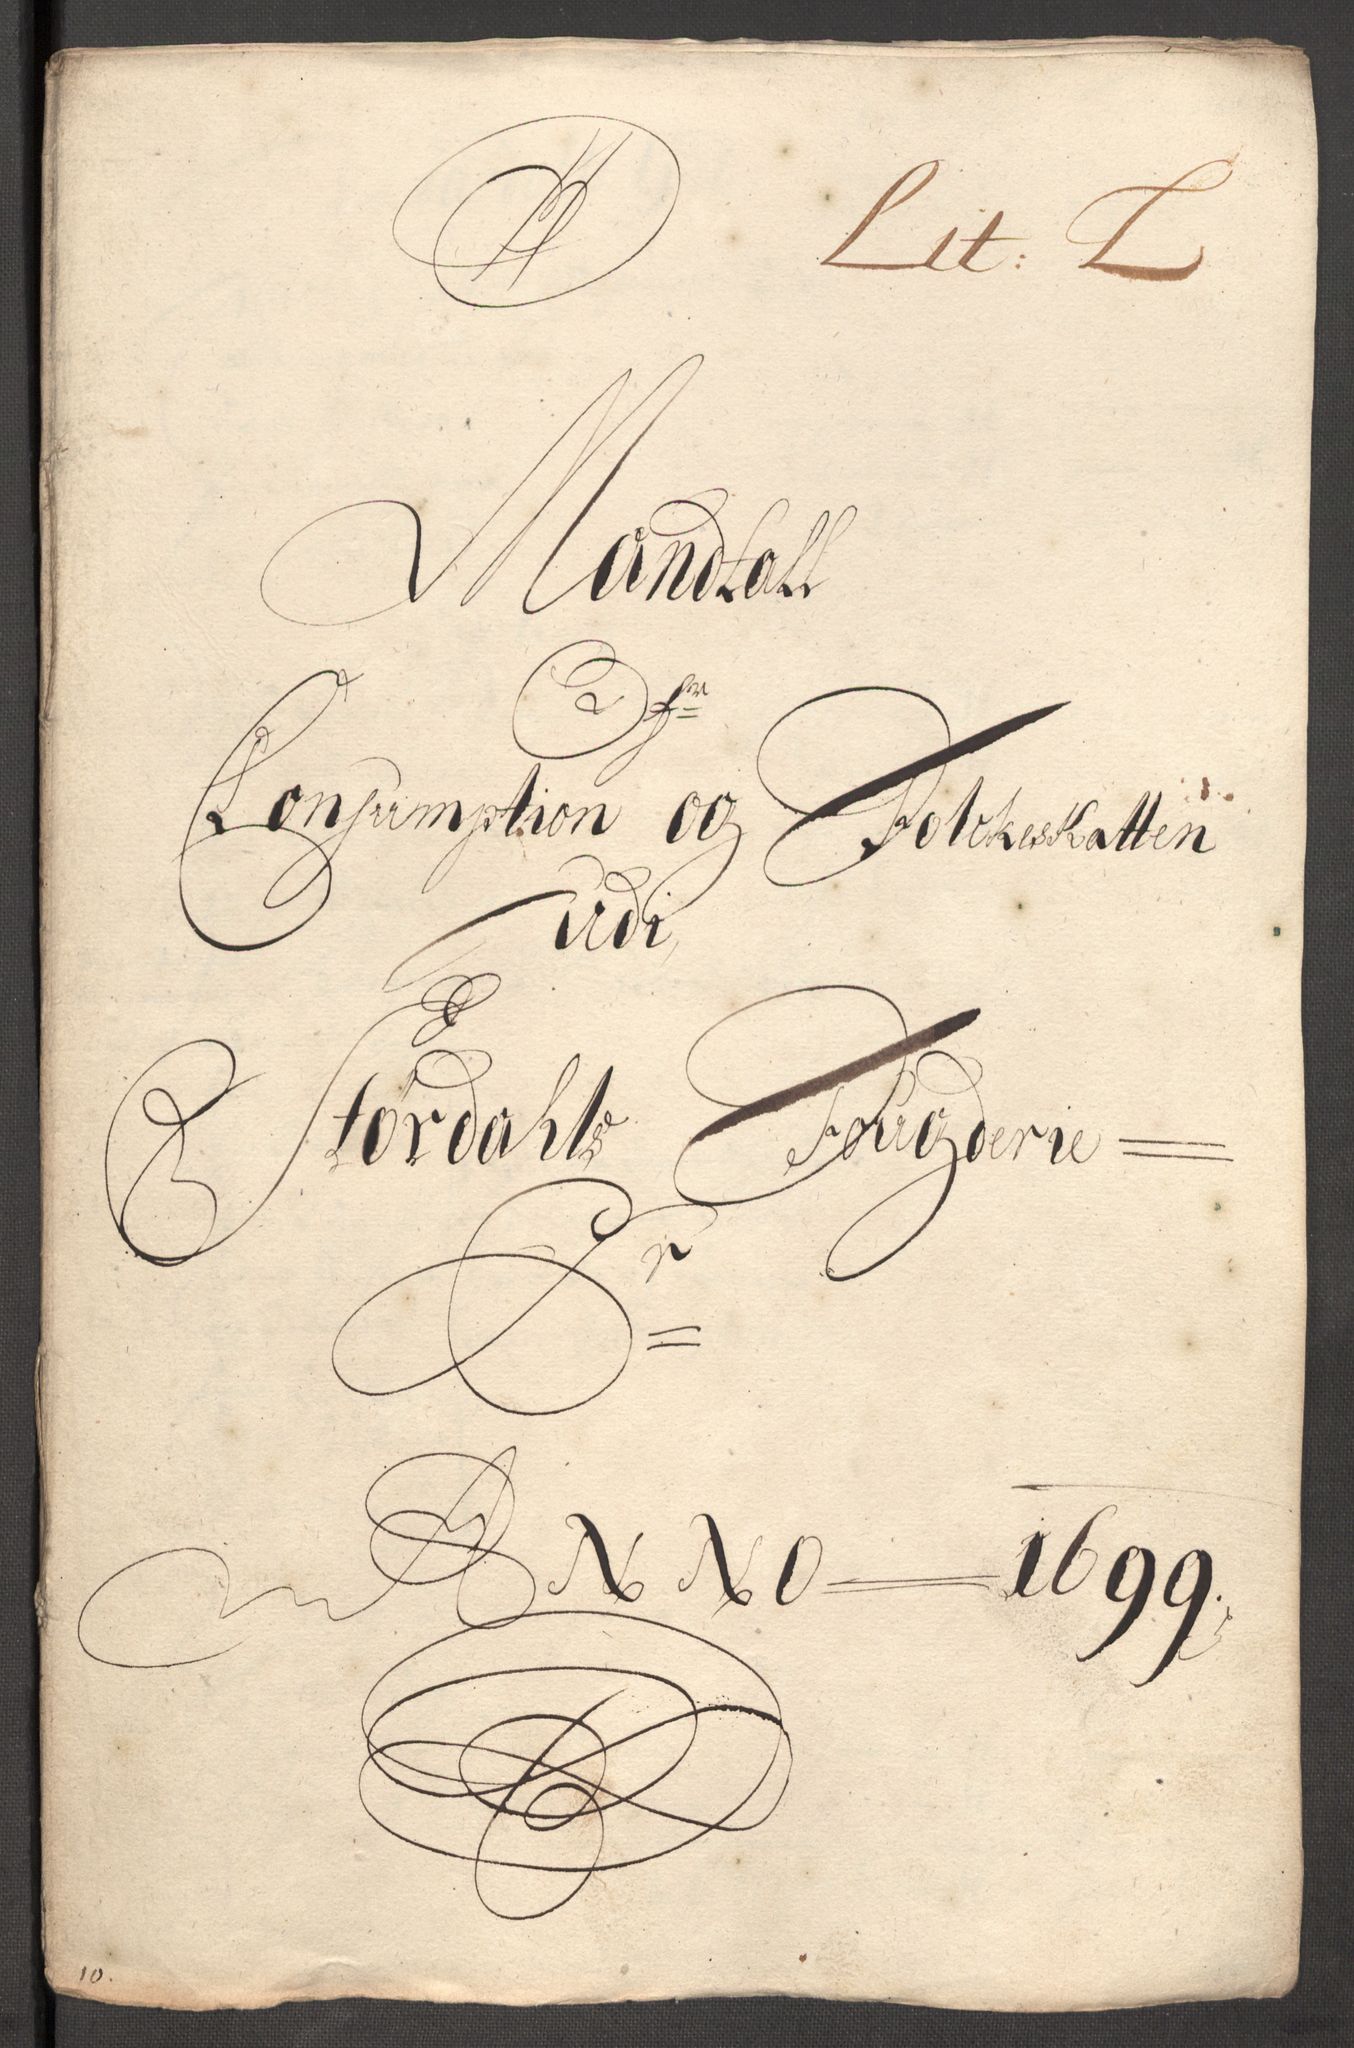 Lit: L
Mandtall
Ofr
Consumption og Folckeskatten
udi
Stördahls Fougderie
Pr
ANNO 1699.
10.